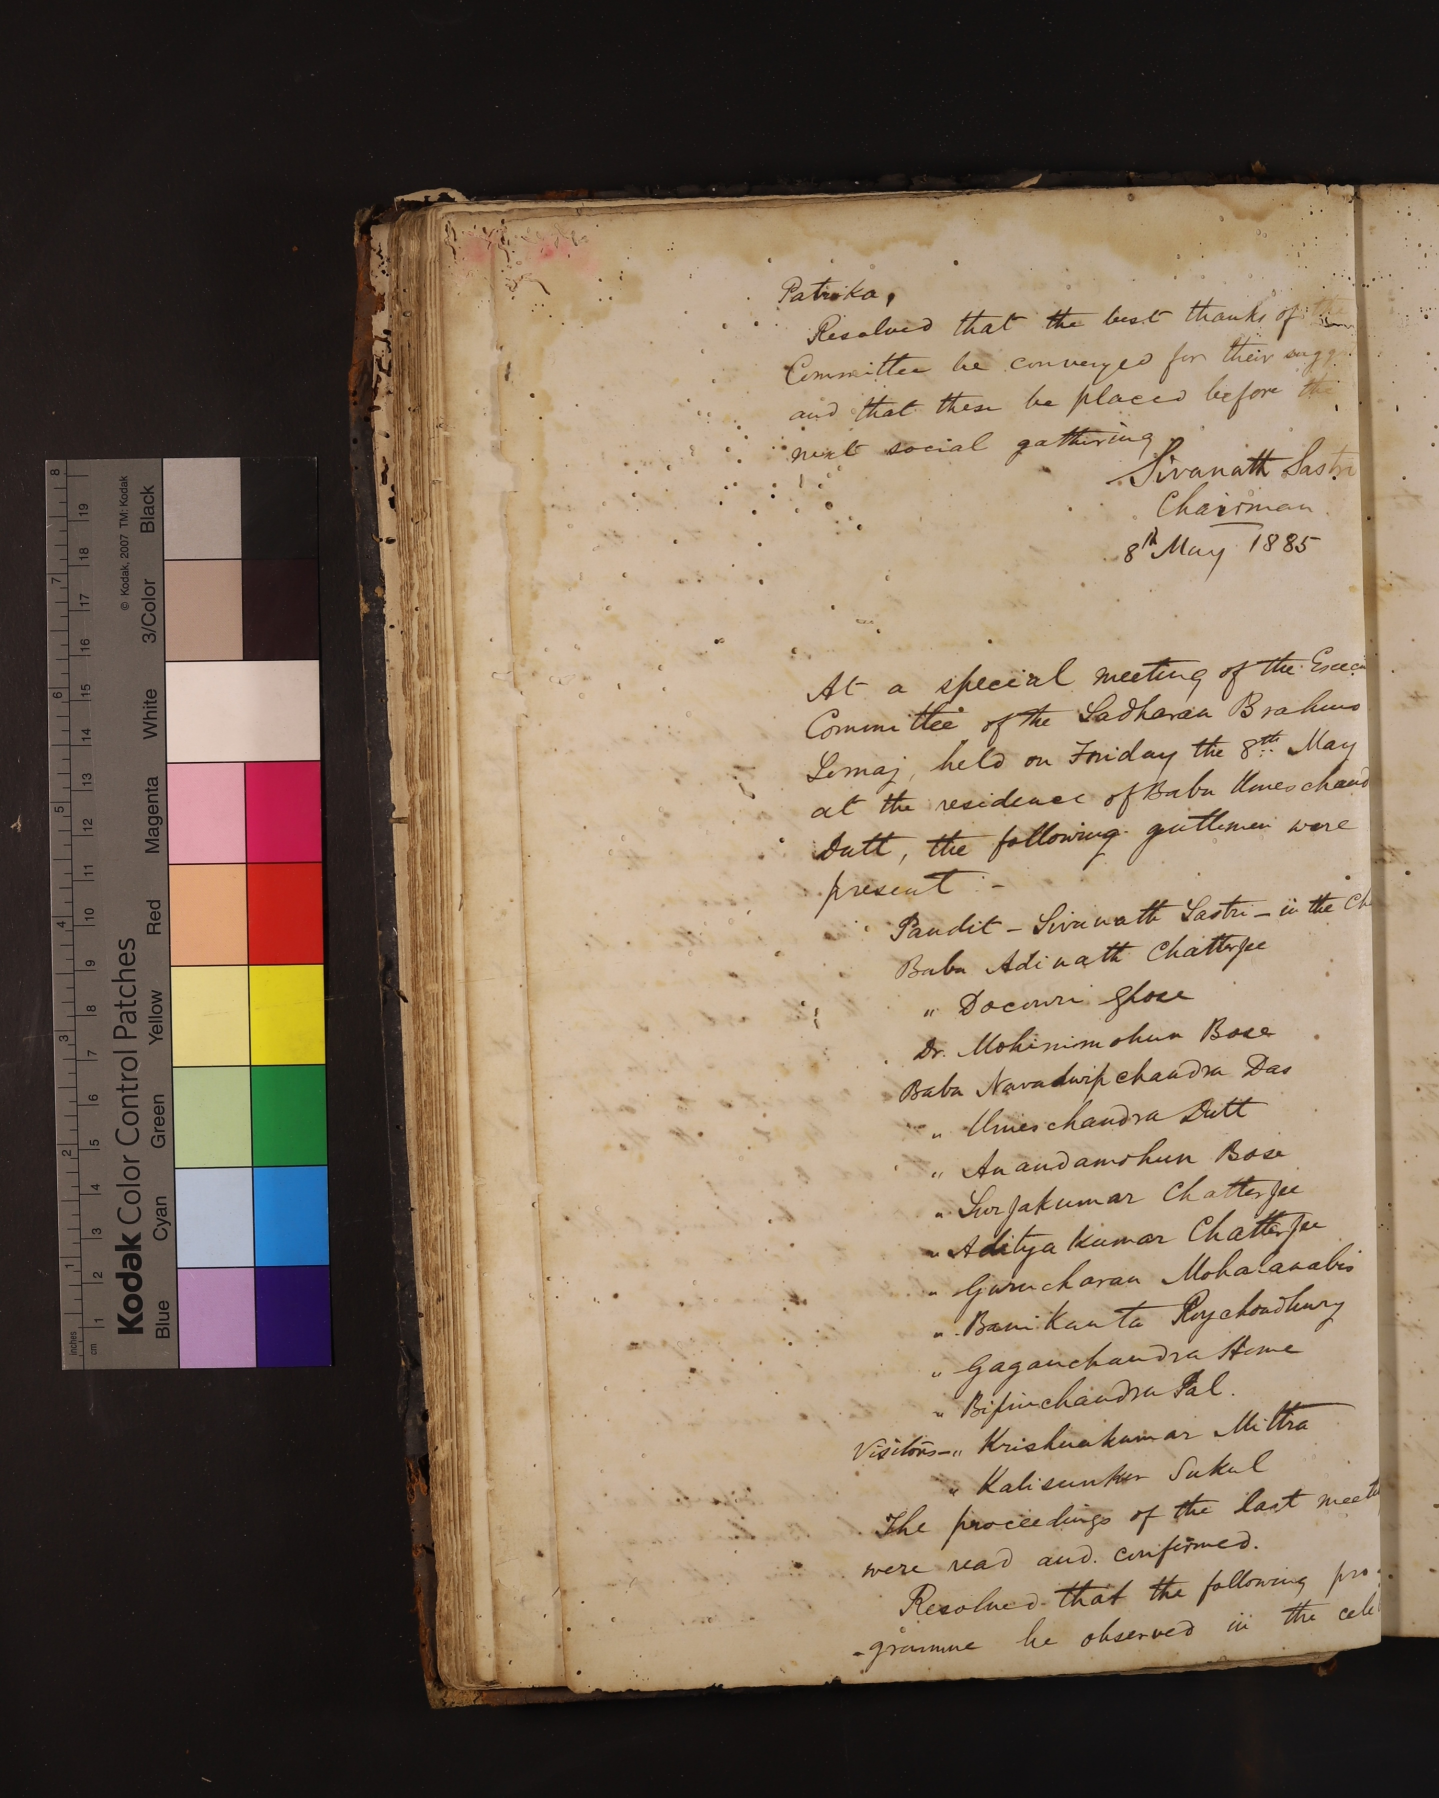 Patrika,
Resolved that the best thanks of the
Committee be conveyed for their sugg
and that these be placed before the
next social gathering
Sivanath Sastri
Chairman
8th May 1885
At a special meeting of the Execu
Committee of the Sadharan Brahmo
Somaj, held on Friday the 8th May
at the residence of Babu Umeschand
Dutt, the following gentlemen were
present :-
Pandit - Sivanath Sastri - in the Ch
Babu Adinath Chatterjee
" Docowri Ghose
Dr. Mohinimohun Bose
Babu Navadwipchandra Das
" Umeschandra Dutt
" Anandamohun Bose
" Surjakumar Chatterjee
" Aditya Kumar Chatterjee
" Gurucharan Mohalanabis
" Banikanta Roychoudhury
" Gaganchandra Home
" Bipinchandra Pal.
Visitors - " Krishnakumar Mittra
" Kalisunker Sukul
The proceedings of the last meeti
were read and confirmed.
Resolved that the following pro-
-gramme be observed in the cele
Kodak Color Control Patches
© Kodak, 2007 TM: Kodak
Blue Cyan Green Yellow Red Magenta White 3/Color Black
inches 1 2 3 4 5 6 7 8
cm 1 2 3 4 5 6 7 8 9 10 11 12 13 14 15 16 17 18 19